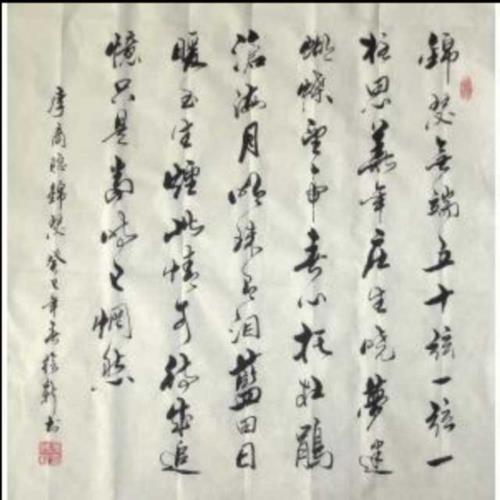 錦瑟無端五十弦一弦一
柱思華年庄生曉夢迷
蝴蝶望帝春心托杜鵑
滄海月明珠有泪藍田日
暖玉生煙此情可待成追
憶只是當時已惘然
李商隱錦瑟癸巳年春